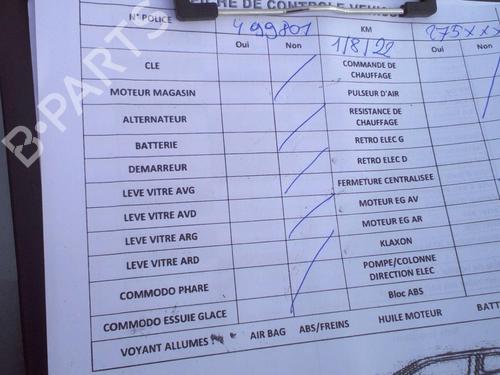 FICHE DE CONTROLE VEHICULE
N° POLICE 499801 KM 275xxx
Oui Non 1/8/22 Oui Non
CLE COMMANDE DE CHAUFFAGE
MOTEUR MAGASIN PULSEUR D'AIR
ALTERNATEUR RESISTANCE DE CHAUFFAGE
BATTERIE RETRO ELEC G
DEMARREUR RETRO ELEC D
LEVE VITRE AVG FERMETURE CENTRALISEE
LEVE VITRE AVD MOTEUR EG AV
LEVE VITRE ARG MOTEUR EG AR
LEVE VITRE ARD KLAXON
COMMODO PHARE POMPE/COLONNE DIRECTION ELEC
COMMODO ESSUIE GLACE Bloc ABS
VOYANT ALLUMES : AIR BAG ABS/FREINS HUILE MOTEUR BATT
B-PARTS